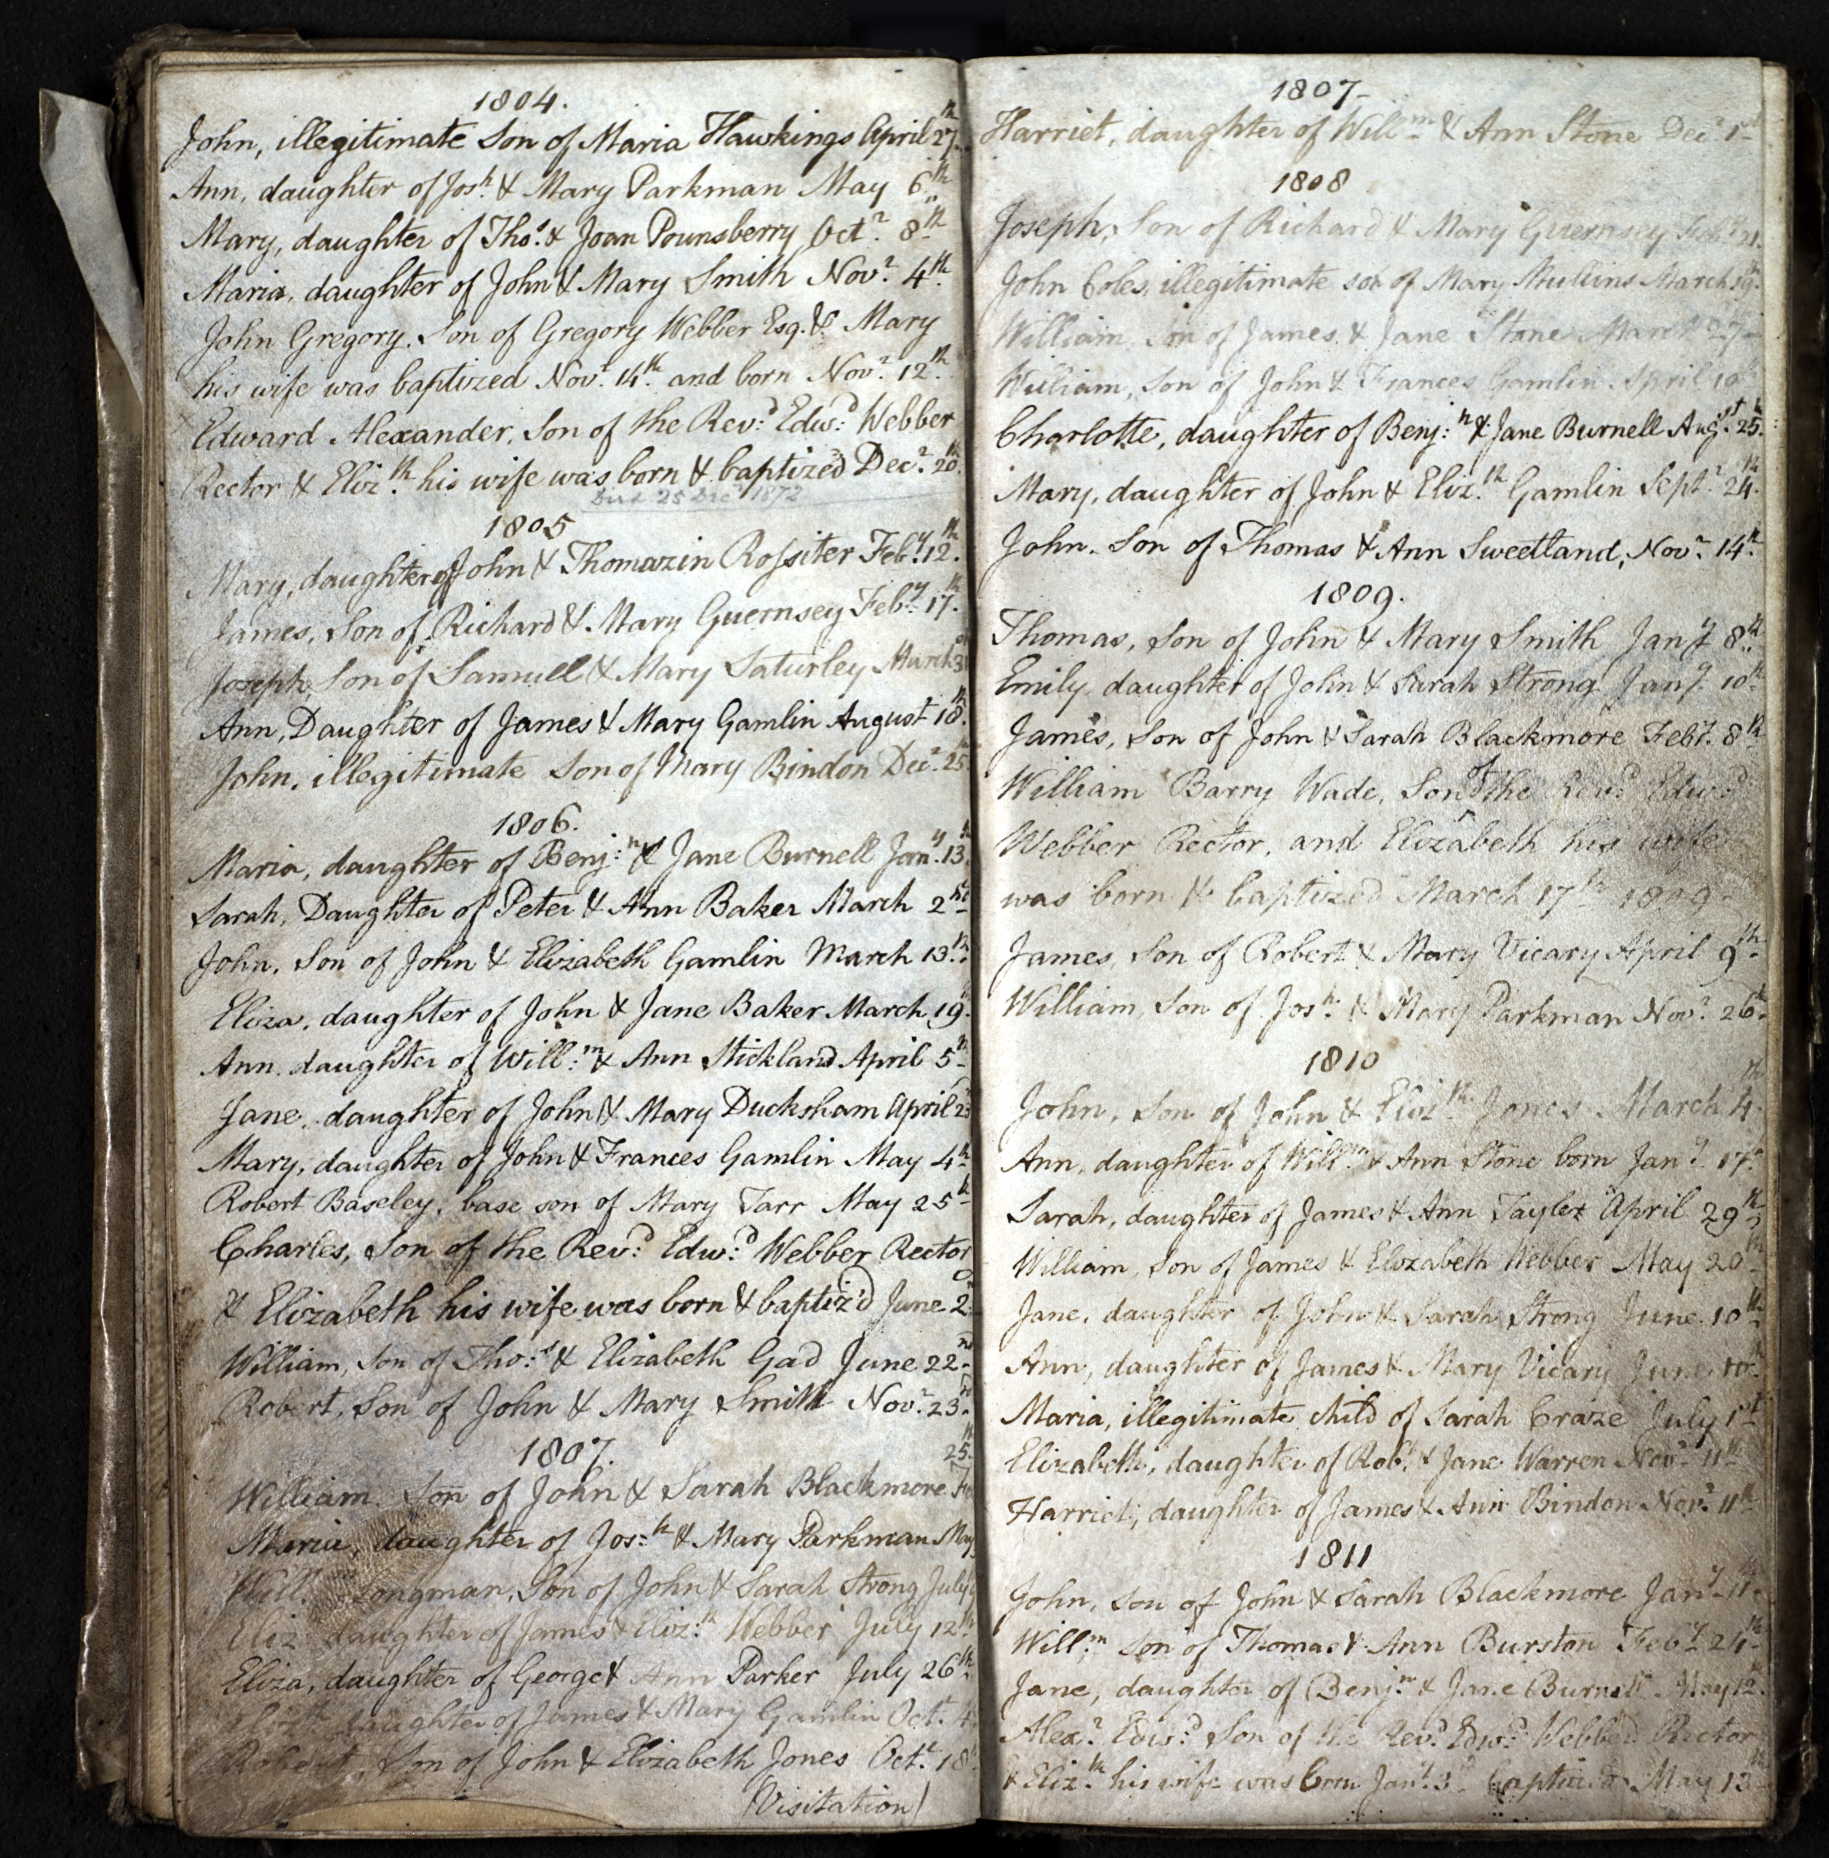 1804.
John, illegitimate Son of Maria Hawkings April 27th
Ann, daughter of Josh & Mary Parkman May 6th
Mary, daughter of Thos. & Joan Pounsberry Octr. 8th
Maria, daughter of John & Mary Smith Novr. 4th.
John Gregory. Son of Gregory Webber Esq. & Mary
his wife was baptized Novr. 14th. and born Novr. 12th.
Edward Alexander, Son of the Revd: Edwd: Webber
Rector & Elizth. his wife was born & baptized Decr. 20th.
Died 25 Dec 1872
1805
Mary, daughter of John & Thomazin Rossiter Feby. 12th.
James, Son of Richard & Mary Guernsey Feby. 17th.
Joseph, Son of Samuell & Mary Saturley March 3
Ann, Daughter of James & Mary Gamlin August 18th.
John, illegitimate Son of Mary Bindon Decr. 25
1806.
Maria, daughter of Benj:n & Jane Burnell Jany. 13
Sarah, Daughter of Peter & Ann Baker March 2
John, Son of John & Elizabeth Gamlin March 13th.
Eliza, daughter of John & Jane Baker March 19
Ann, daughter of Will:m & Ann Stickland April 5th
Jane, daughter of John & Mary Ducksham April 23
Mary, daughter of John & Frances Gamlin May 4th
Robert Baseley, base son of Mary Tarr May 25th
Charles, Son of the Revd: Edw:d Webber Rector
& Elizabeth his wife was born & baptiz'd June 2d
William, Son of Tho:s & Elizabeth Gad June 22nd
Robert, Son of John & Mary Smith Novr. 23
1807.
25th
William. Son of John & Sarah Blackmore Fe
Maria, daughter of Jos:h & Mary Parkman May
Will:m Longman, Son of John & Sarah Strong July
Eliz daughter of James & Eliz:th Webber July 12th
Eliza, daughter of George & Ann Parker July 26th
Elizth daughter of James & Mary Gamlin Oct. 4
Robert, Son of John & Elizabeth Jones Octr. 18
(Visitation)
1807
Harriet, daughter of Willm & Ann Stone Decr. 1st
1808
Joseph, Son of Richard & Mary Guernsey Feby 21
John Coles, illegitimate son of Mary Mullins March 19th.
William, Son of James & Jane Stone March 27
William, Son of John & Frances Gamlin April 10
Charlotte, daughter of Benj:n & Jane Burnell Augst. 25th.
Mary, daughter of John & Eliz.th Gamlin Septr. 24th.
John. Son of Thomas & Ann Sweetland, Novr. 14th.
1809.
Thomas, Son of John & Mary Smith Jany 8th
Emily daughter of John & Sarah Strong Jany. 10th
James, Son of John & Sarah Blackmore Feby. 8th
William Barry Wade, Son of the Revd Edwd
Webber Rector, and Elizabeth his wife
was born & baptized March 17th 1809
James, Son of Robert & Mary Vicary April 9th
William, Son of Josh: & Mary Parkman Novr. 26th
1810
John, Son of John & Elizth Jones March 4th
Ann, daughter of Willm & Ann Stone born Jany. 17th
Sarah, daughter of James & Ann Tayler April 29th
William, Son of James & Elizabeth Webber May 20th
Jane, daughter of John & Sarah Strong June 10th
Ann, daughter of James & Mary Vicary June 10th
Maria, illegitimate child of Sarah Craze July 1st
Elizabeth, daughter of Robt. & Jane Warren Novr. 11th
Harriet, daughter of James & Ann Bindon Novr. 11th
1811
John, Son of John & Sarah Blackmore Jany 11th
Will:m Son of Thomas & Ann Burston Feby 24th
Jane, daughter of Benj:n & Jane Burnell May 12th.
Alexr. Edwd: Son of the Revd. Edwd: Webber Rector
& Eliz:th his wife was born Jany. 3d baptized May 13th